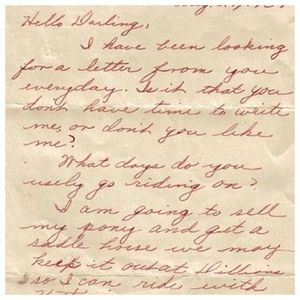 Hello Darling,
I have been looking
for a letter from you
everyday. Is it that you
dont have time to write
me, or don't you like
me?
What days do you
usely go riding on?
I am going to sell
my pony and get a
sadle horse we may
keep it out at Dillions
so I can ride with